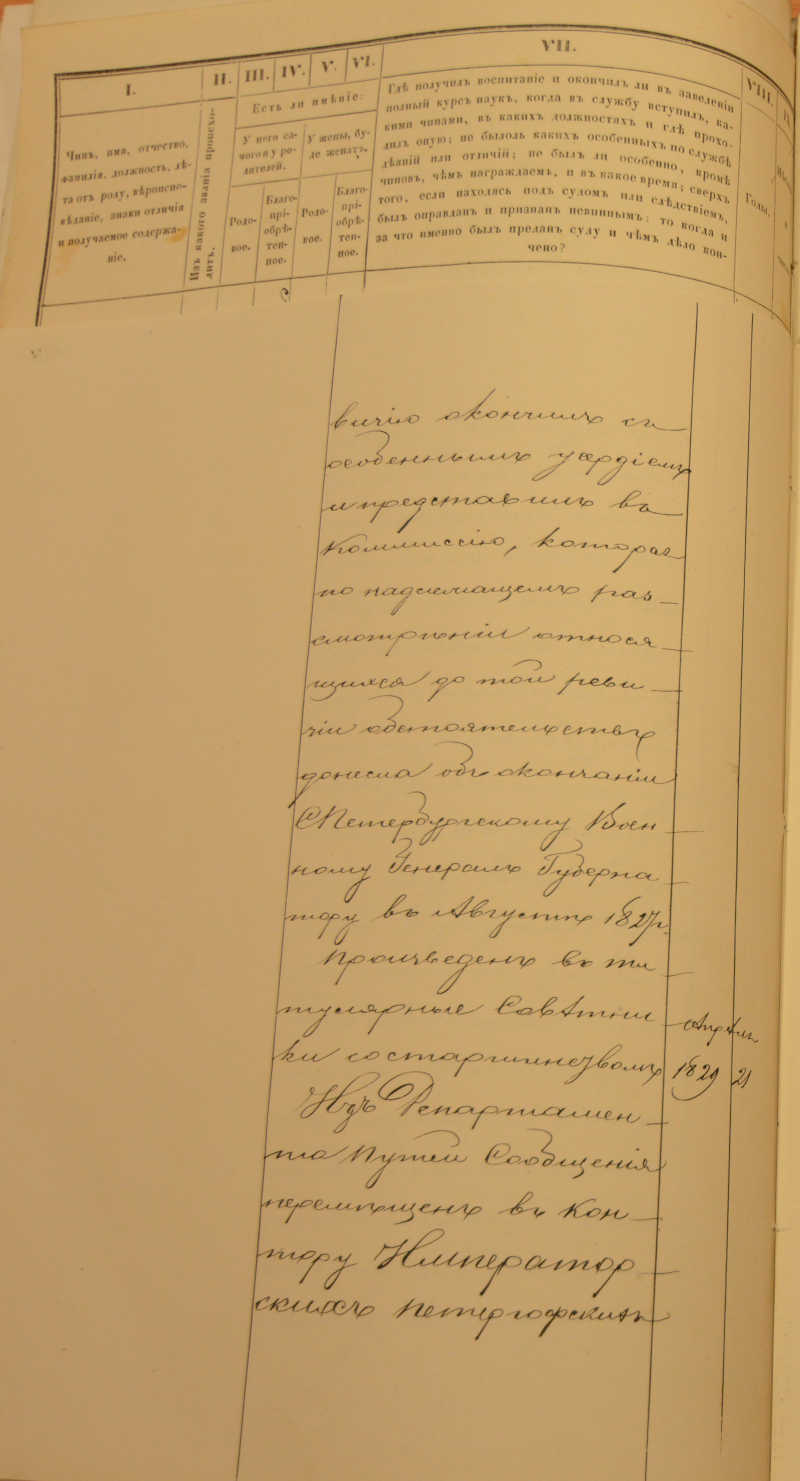 I.
Чинъ, имя, отчество,
фамилія, должность, лѣ-
та отъ роду, вѣроиспо-
вѣданіе, знаки отличія
и получаемое содержа-
ніе.
II.
Изъ какого званія происхо-
дитъ.
III. IV. V. VI.
Есть ли имѣніе:
У него са-
мого и у ро-
дителей.
У жены, бу-
де женатъ.
Родо-
вое.
Благо-
прі-
обрѣ-
тен-
ное.
Родо-
вое.
Благо-
прі-
обрѣ-
тен-
ное.
VII.
Гдѣ получилъ воспитаніе и окончилъ ли въ заведеніи
полный курсъ наукъ, когда въ службу вступилъ, ка-
кими чинами, въ какихъ должностяхъ и гдѣ прохо-
дилъ оную; не былоль какихъ особенныхъ по службѣ
дѣяній или отличій; не былъ ли особенно, кромѣ
чиновъ, чѣмъ награждаемъ, и въ какое время; сверхъ
того, если находясь подъ судомъ или слѣдствіемъ,
былъ оправданъ и признанъ невиннымъ: то когда и
за что именно былъ преданъ суду и чѣмъ дѣло кон-
чено?
VIII.
Годы.
визію окончилъ съ
особеннымъ усердіемъ
и представилъ въ
Коммиссію, которая
по надлежащемъ раз
смотреніи относя
щихся до той реви
зіи обстоятельствъ
донесла объ окончаніи
СПетербургскому Воен
ному Генералъ Губерна
тору въ Августѣ 1827 г.
Произведенъ въ ти
тулярные Совѣтни
ки со старшинствомъ
1829
Апрѣля
21
Изъ Департамен
та Путей Сообщенія
перемѣщенъ въ Кон
тору Император
скихъ Петергофскихъ